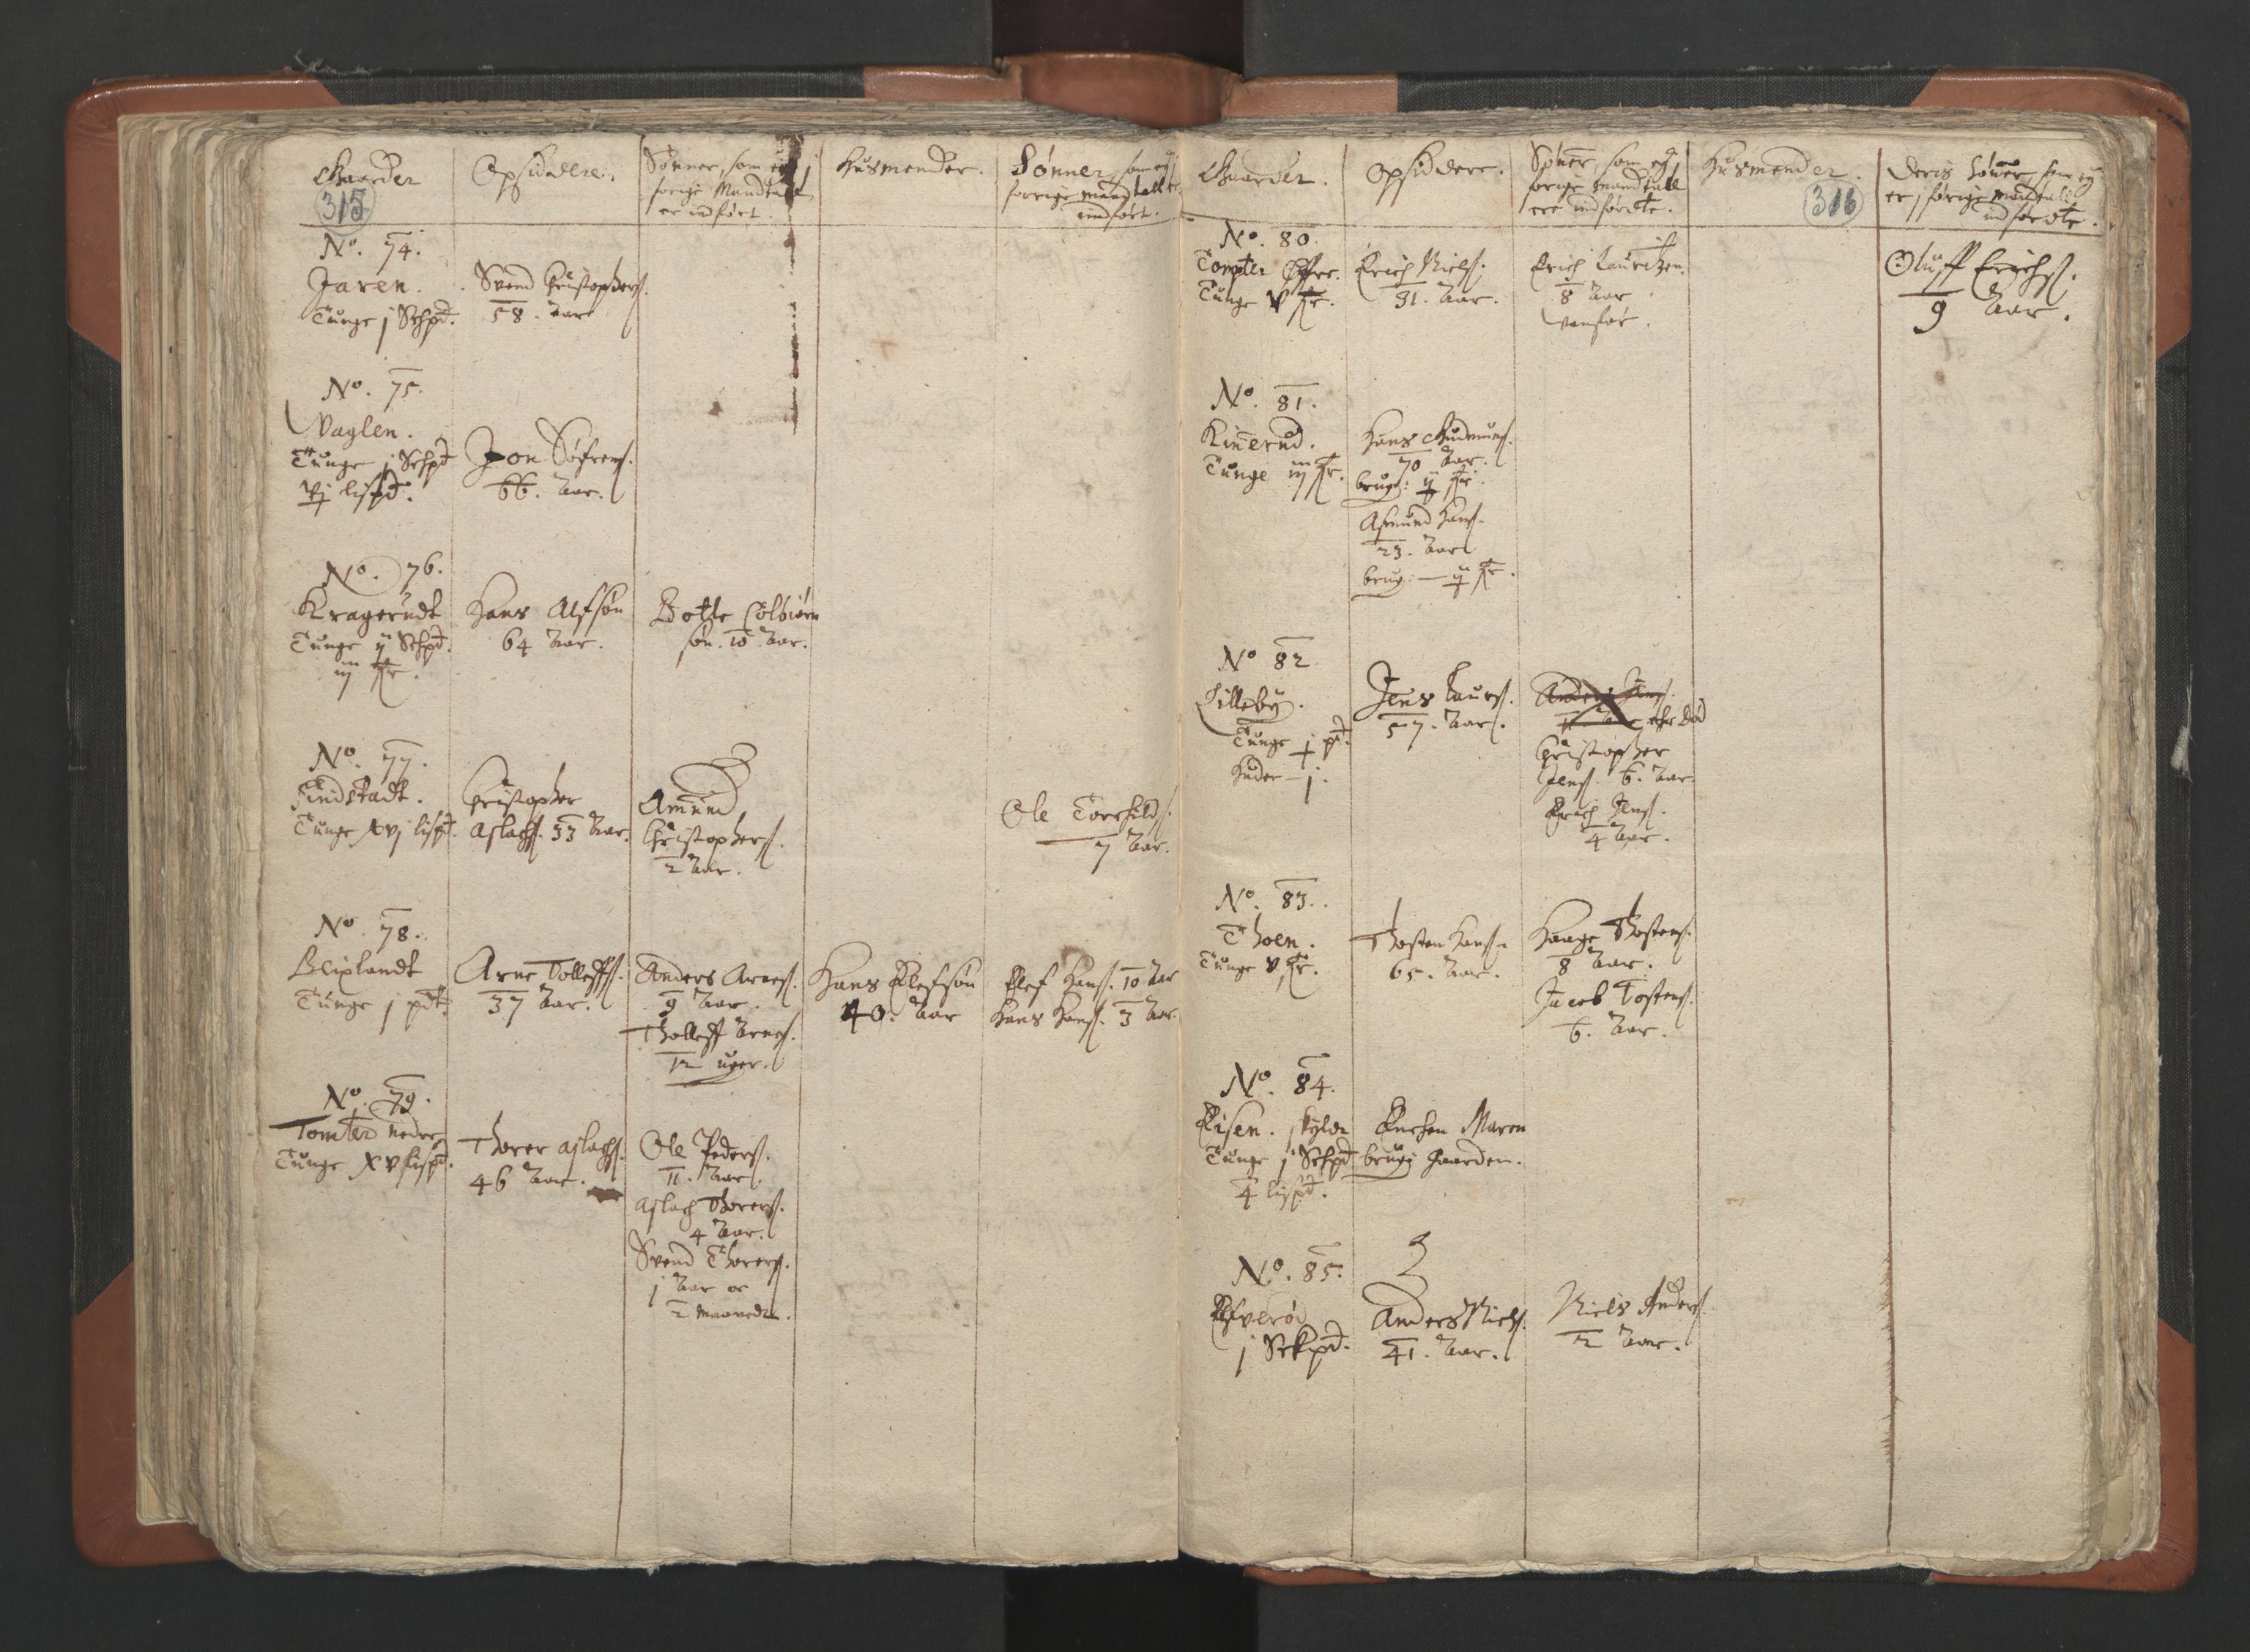 Gaarder
315
Opsiddere.
Sønner, som ey j
forige Mandtall
er indført.
Husmender.
Sønner, som ey j
forrige mandtall er
indført.
No. 74.
Jaren.
Tunge j Schpd.
Svend Christophers.
58. Aar
No. 75.
Vaglen.
Tunge j Schpd
vj lispd.
Jon Søfrens.
66. Aar.
No. 76.
Kragerudt
Tunge ij Schpd.
iij fr.
Hans Alfsøn
64 Aar.
Botte Colbiørn
søn. 10 Aar.
No. 77.
Findstadt.
Tunge xvj lispd.
Christopher
Aslachs. 33 Aar.
Amund
Christophers.
2 Aar.
Ole Torchilds.
7 Aar.
No. 78.
Tunge j pd.
Arne Tolleffs.
37 Aar.
Anders Arnes.
9 Aar.
Tholleff Arnes.
12 uger.
Hans Elefsøn
40. Aar
Elef Hans. 10 Aar
Hans Hans. 3 Aar.
No. 79.
Tomter nedre
Tunge xv lispd.
Thorer Aslachs.
46 Aar.
Ole Peders.
11. Aar.
Aslach Thorers.
4 Aar.
Svend Thorers.
j Aar oc
2 maaneder.
Gaarder.
Opsiddere.
Sønner, som ey j
forige mandtall
ere indførdte.
Husmender.
316
Deris Sønner, som ey
er j forige mandtall
indførdte.
No. 80.
Tompter
Tunge v fr.
Erich Niels.
31. Aar.
Erich Lauritzen.
8 Aar
vanfør.
Oluff Erichs.
9 Aar.
No. 81.
Kinnerud.
Tunge iij fr.
Hans Gudmuns.
70 Aar.
brug: ij fr.
Asmund Hans.
23. Aar
brug: — ij fr.
No 82
Lilleby.
Tunge j pd.
Huder — j.
Jens Laurs.
57. Aar.
Anders Jens.
Aar er død
Christopher
Jens. 6. Aar.
Erich Jens.
4 Aar.
No. 83.
Thoen.
Tunge v fr.
Thosten Hans.
65. Aar.
Haage Thostens.
8 Aar.
Jacob Tostens.
6. Aar.
No. 84.
Risen. skylder
Tunge j Schpd
4 lispd.
Enchen Maren
brugi Gaarden.
No. 85.
j Schpd.
Anders Niels.
41. Aar.
Niels Anders.
2 Aar.